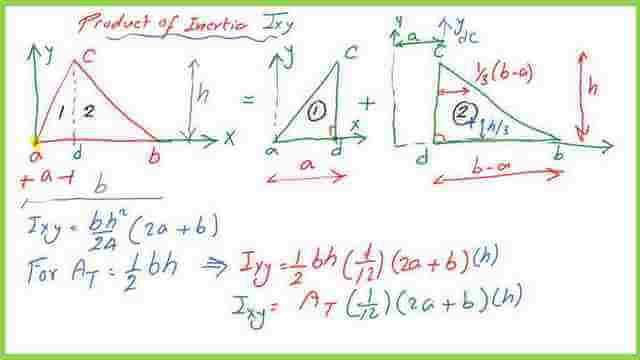 Product of Inertia Ixy
y c 1 2 h a d b x
+ a +
b
=
y c ① x a d
a
+
y a y dc
c 1/3 (b-a) ② h/3 h d b
b-a
Ixy = bh²/24 (2a+b)
For A_T = 1/2 bh ⇒ Ixy = 1/2 bh (1/12)(2a+b)(h)
Ixy = A_T (1/12)(2a+b)(h)